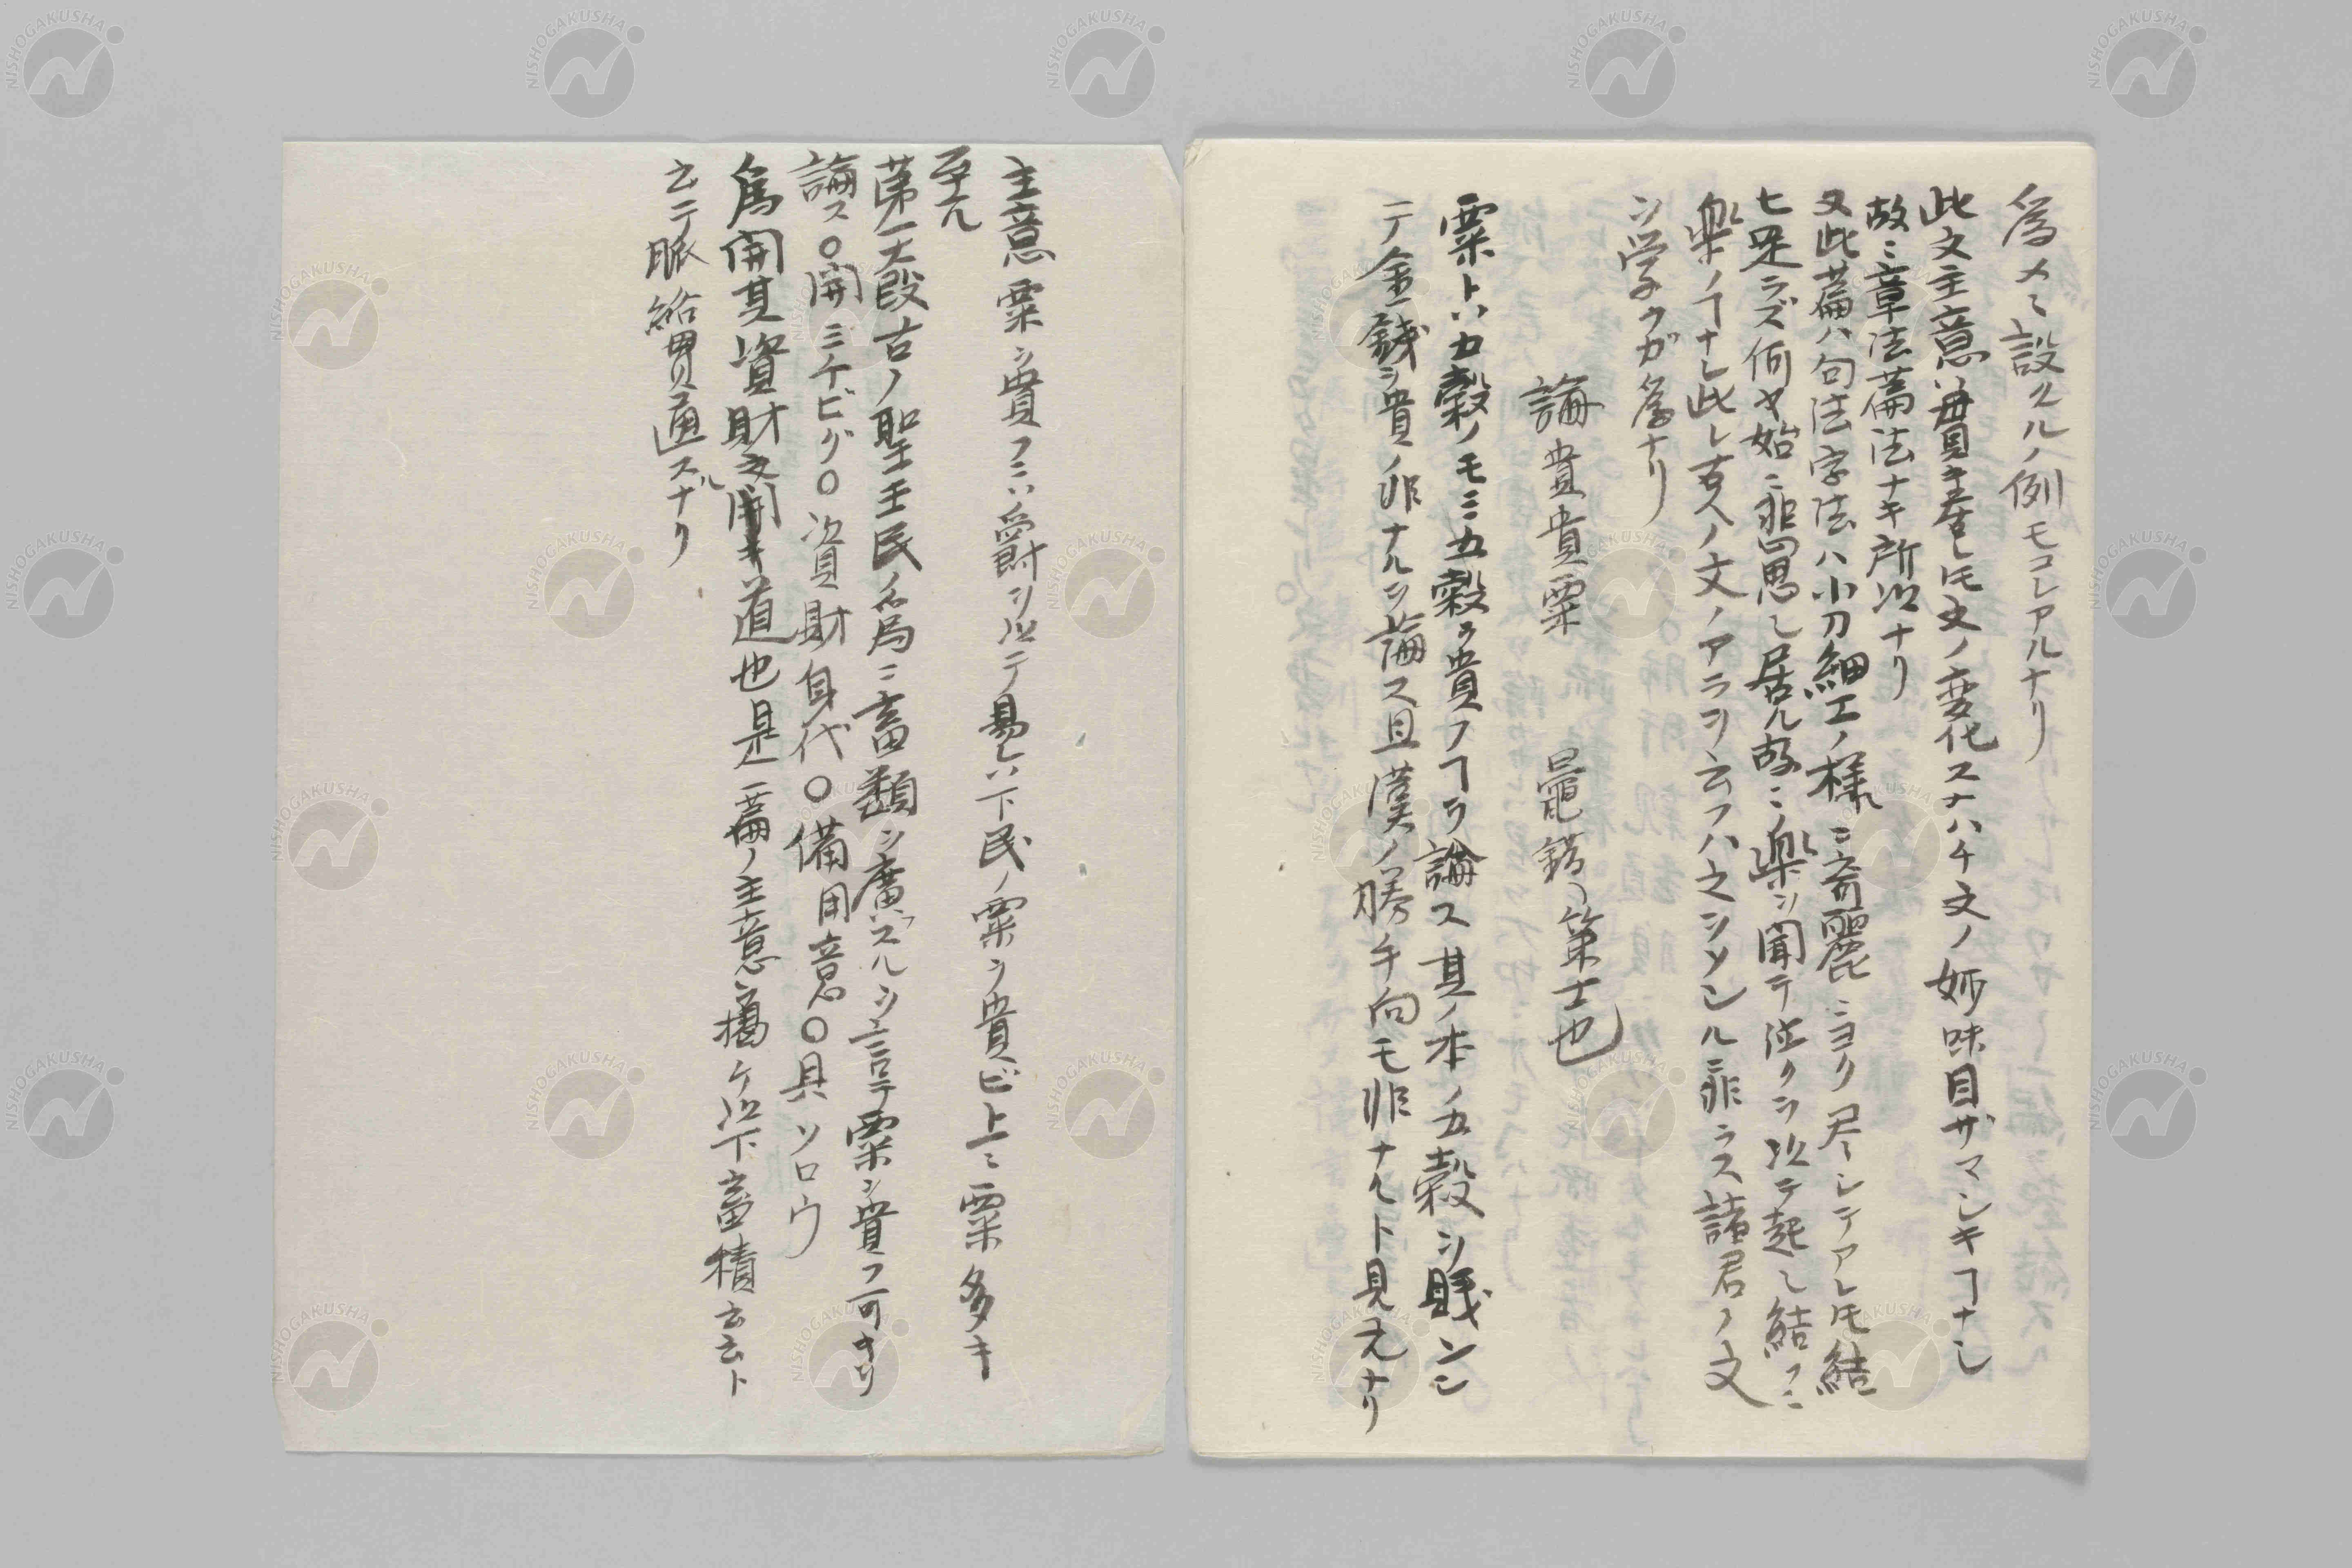 為メニ設クルノ例モコレアルナリ
此文主意ハ一貫キ居レ𪜈文ノ変化スナハチ文ノ妙味目ザマシキヿナシ
故ニ章法篇法ナキ所以ナリ
又此篇ハ句法字法ハ小刀細工ノ様ニ奇麗ニヨク尽シテアレ𪜈結
ヒ足ラズ何ヤ始ニ非四思シ居ル故ニ楽ヲ聞テ泣クヲ以テ起シ結フニ
楽ノヿナシ此レ古人ノ文ノアラヲ云フハ之ヲソシルニ非ラス諸君ノ文
ヲ学ブガ為ナリ
論貴貴粟 鼂錯ノ策士也
粟トハ五穀ノモミ五穀ヲ貴フヿヲ論ス其ノ本ノ五穀ヲ賤ンシ
テ金銭ヲ貴ノ非ナルヲ論ス且漢ノ勝手向モ非ナルト見元ナリ
主意粟ヲ貴フニハ爵ヲ以テ易ヒハ下民ノ粟ヲ貴ビ上ニ粟多キ
至ル
第一大段古ノ聖王民ノ為ニ畜類ヲ廣ズルヲ言テ粟ヲ貴フ可キヲ
論ス〇開ミチビク〇資財身代〇備用意〇具ソロウ
為開其資財文開キ道也是一篇ノ主意ニ揭ケ以下畜積云云ト
云テ脈絡貫通スルナリ